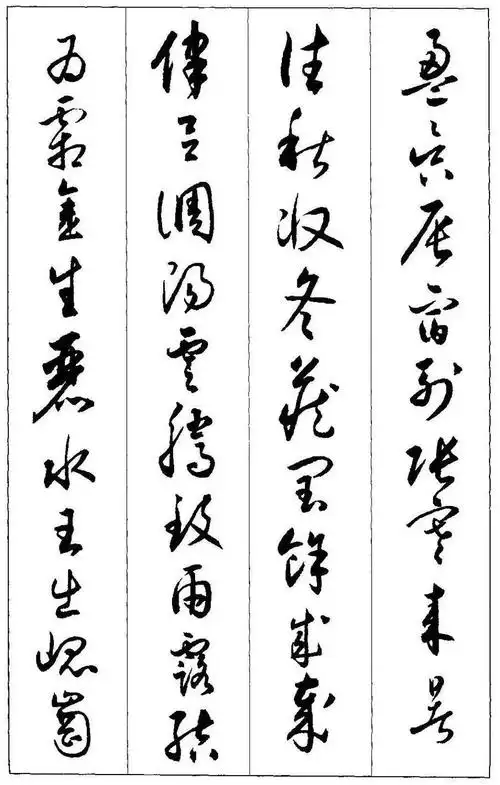 盈昃辰宿列張寒来暑
往秋收冬藏閏餘成歲
律吕調陽雲騰致雨露結
為霜金生麗水玉出崐崗